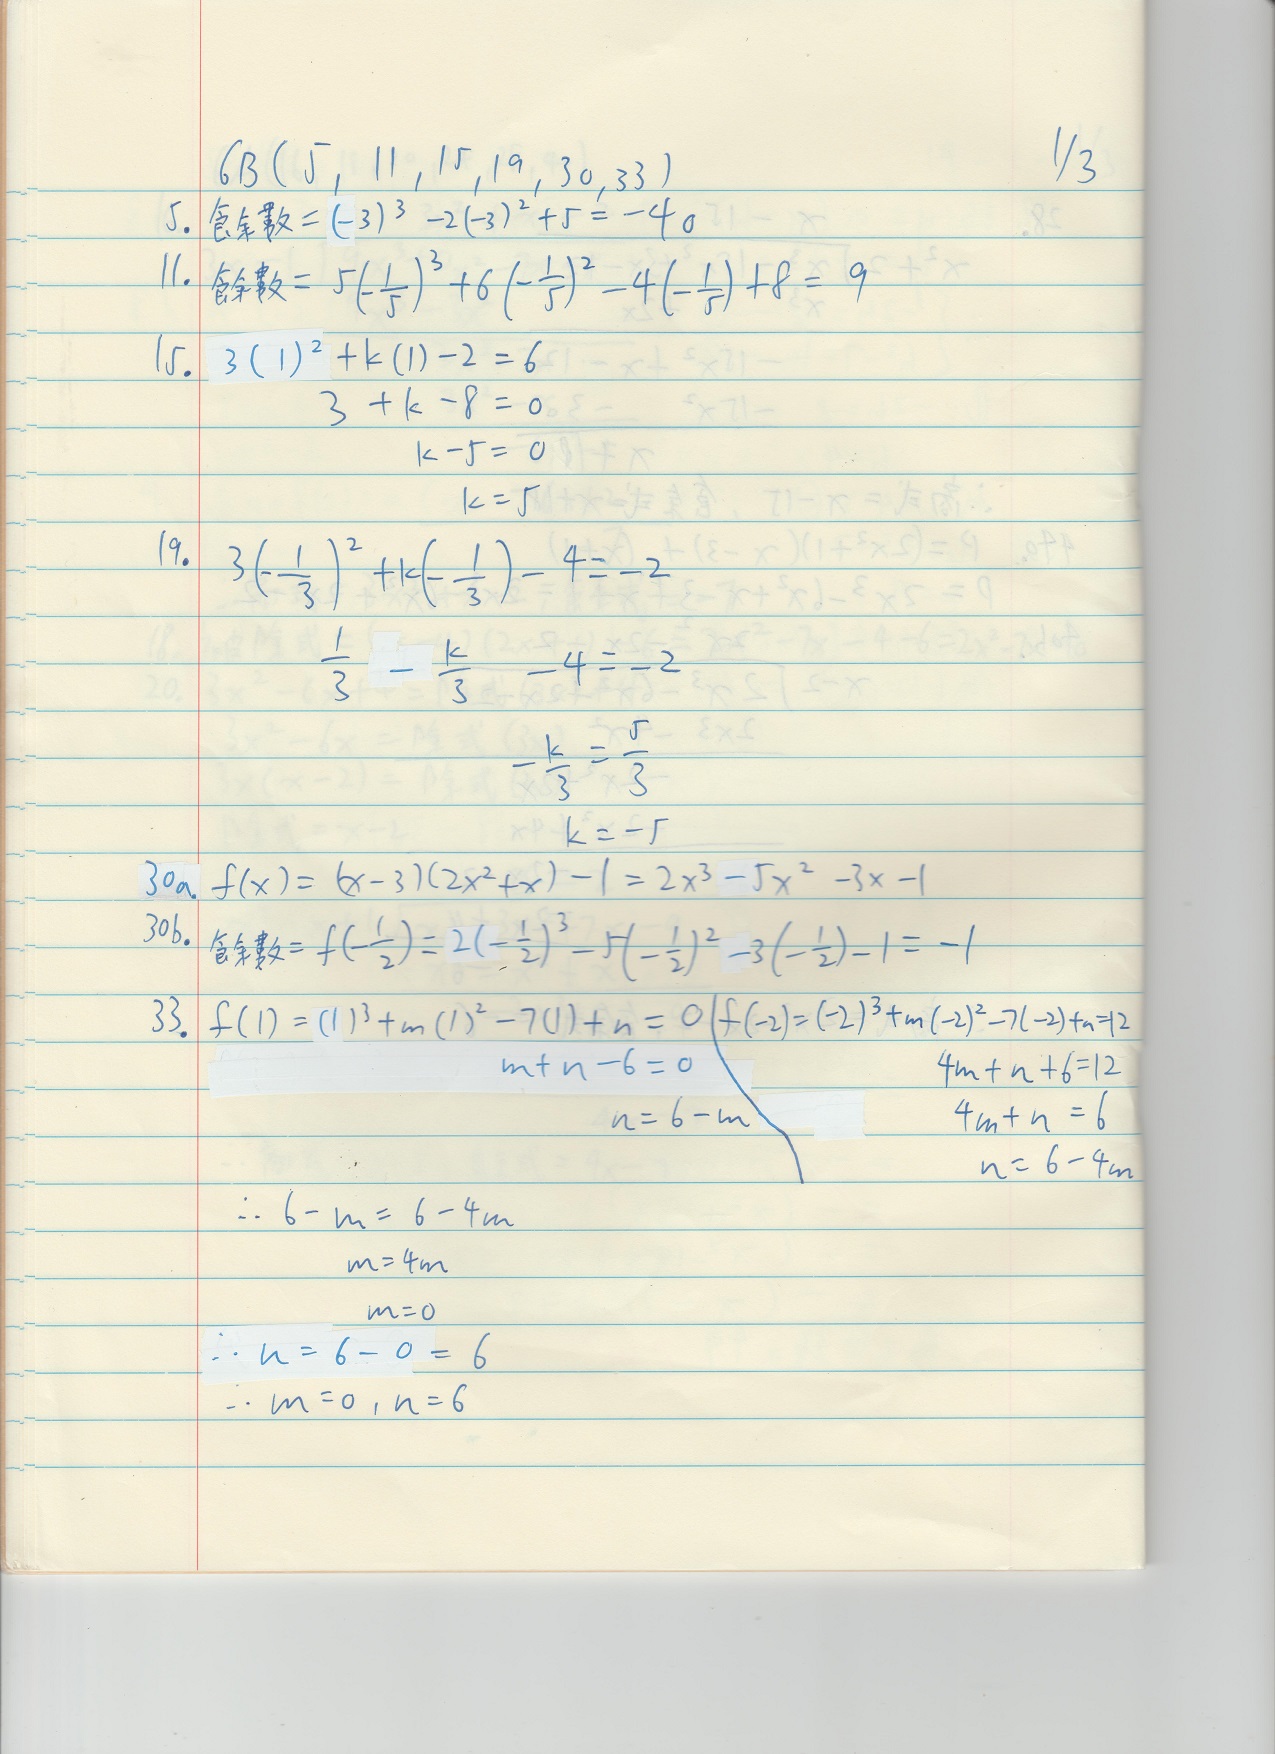 6B(5, 11, 15, 19, 30, 33)
1/3
5. 餘數 = (-3)³ -2(-3)² +5 = -40
11. 餘數 = 5(-1/5)³ +6(-1/5)² -4(-1/5) +8 = 9
15. 3(1)² +k(1) -2 = 6
3 +k -8 = 0
k -5 = 0
k = 5
19. 3(-1/3)² +k(-1/3) - 4 = -2
1/3 - k/3 -4 = -2
-k/3 = 5/3
k = -5
30a. f(x) = (x-3)(2x²+x) -1 = 2x³ -5x² -3x -1
30b. 餘數 = f(-1/2) = 2(-1/2)³ -5(-1/2)² -3(-1/2) -1 = -1
33. f(1) = (1)³ +m(1)² -7(1) +n = 0
m+n-6 = 0
n = 6-m
f(-2) = (-2)³ +m(-2)² -7(-2) +n = 12
4m+n+6 = 12
4m+n = 6
n = 6-4m
∴ 6-m = 6-4m
m = 4m
m = 0
∴ n = 6-0 = 6
∴ m = 0, n = 6